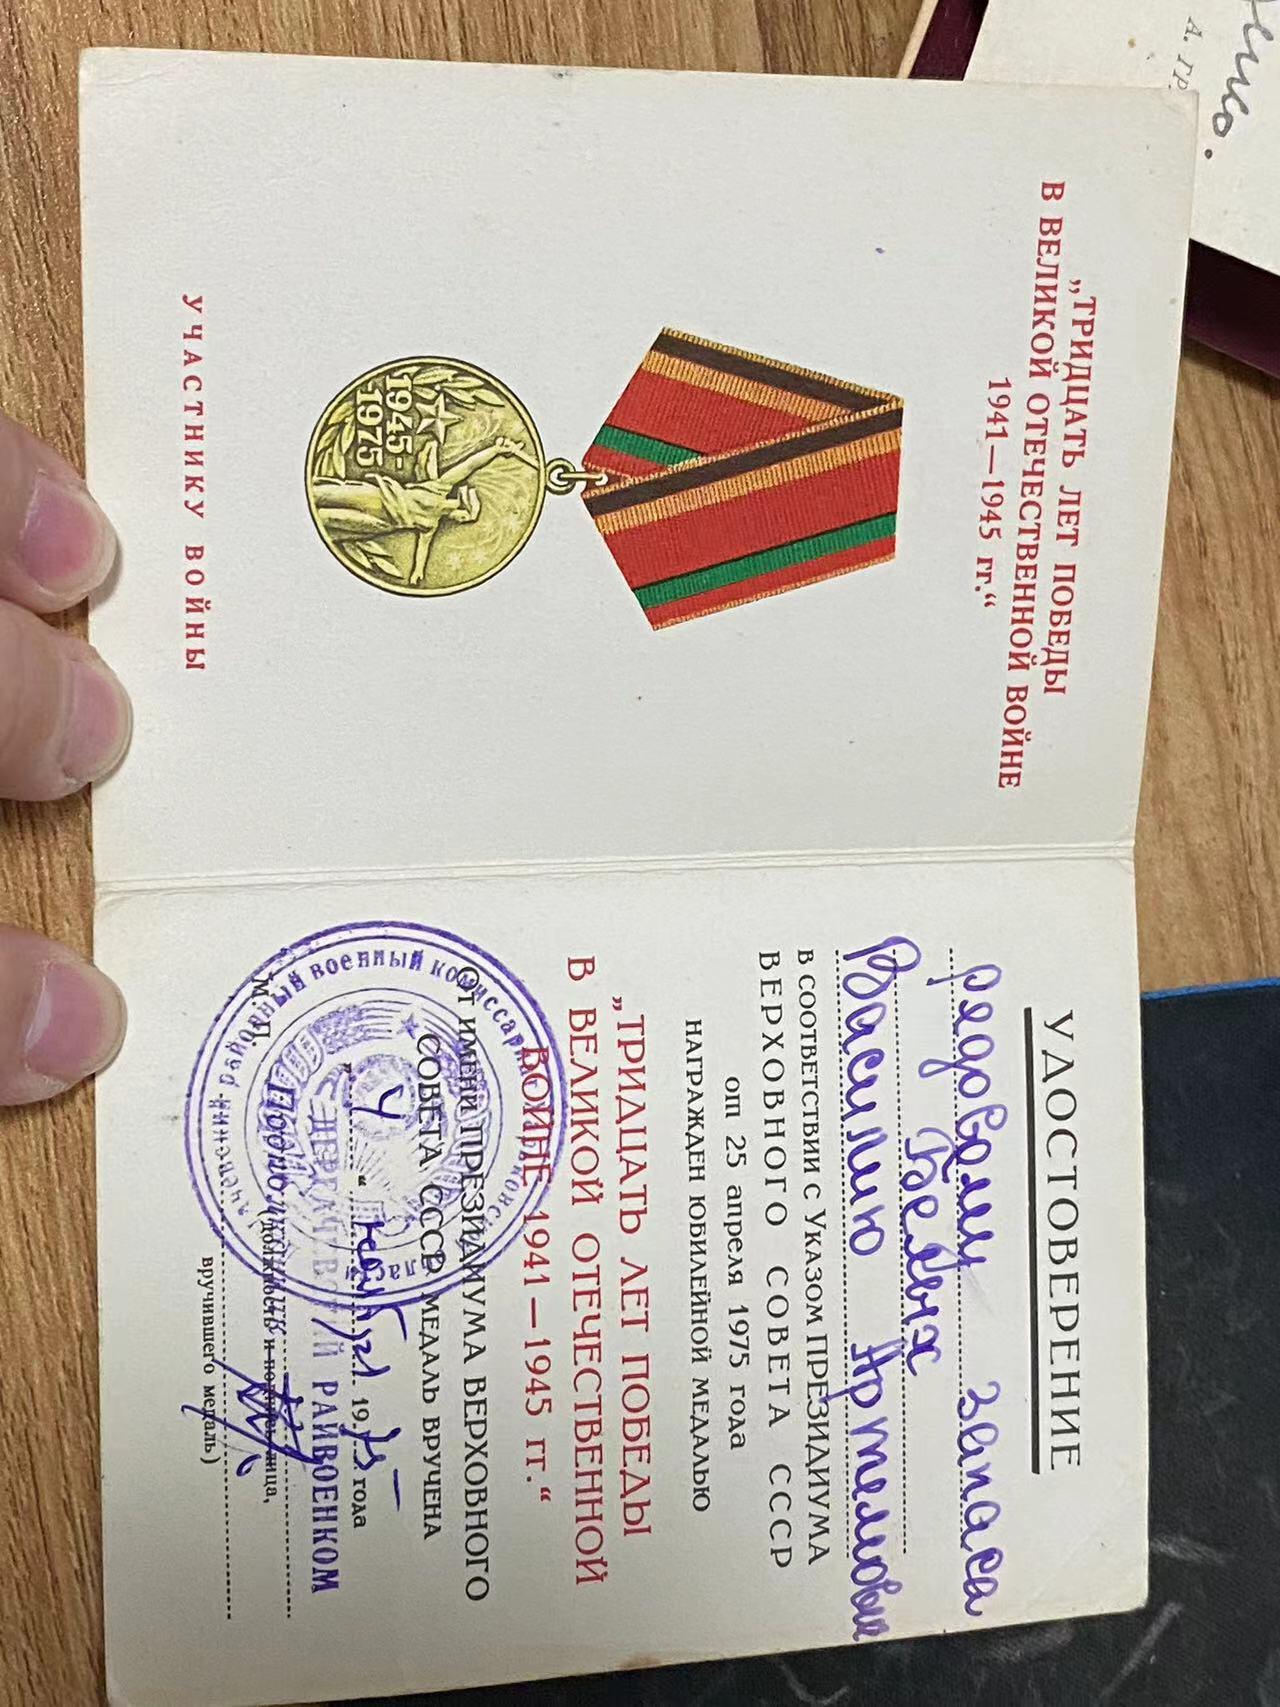 „ТРИДЦАТЬ ЛЕТ ПОБЕДЫ
В ВЕЛИКОЙ ОТЕЧЕСТВЕННОЙ ВОЙНЕ
1941—1945 гг.“
1945-
1975
УЧАСТНИКУ ВОЙНЫ
УДОСТОВЕРЕНИЕ
Рядовому запаса
Белых
Василию Артемови
В СООТВЕТСТВИИ С УКАЗОМ ПРЕЗИДИУМА
ВЕРХОВНОГО СОВЕТА СССР
от 25 апреля 1975 года
НАГРАЖДЕН ЮБИЛЕЙНОЙ МЕДАЛЬЮ
„ТРИДЦАТЬ ЛЕТ ПОБЕДЫ
В ВЕЛИКОЙ ОТЕЧЕСТВЕННОЙ
ВОЙНЕ 1941—1945 гг.“
ОТ ИМЕНИ ПРЕЗИДИУМА ВЕРХОВНОГО
СОВЕТА СССР МЕДАЛЬ ВРУЧЕНА
„4“ ноября 1975 года
РАЙВОЕНКОМ
М. П.
Подполковник
(должность и подпись лица,
вручившего медаль)
районный военный комиссариат
А. ГР